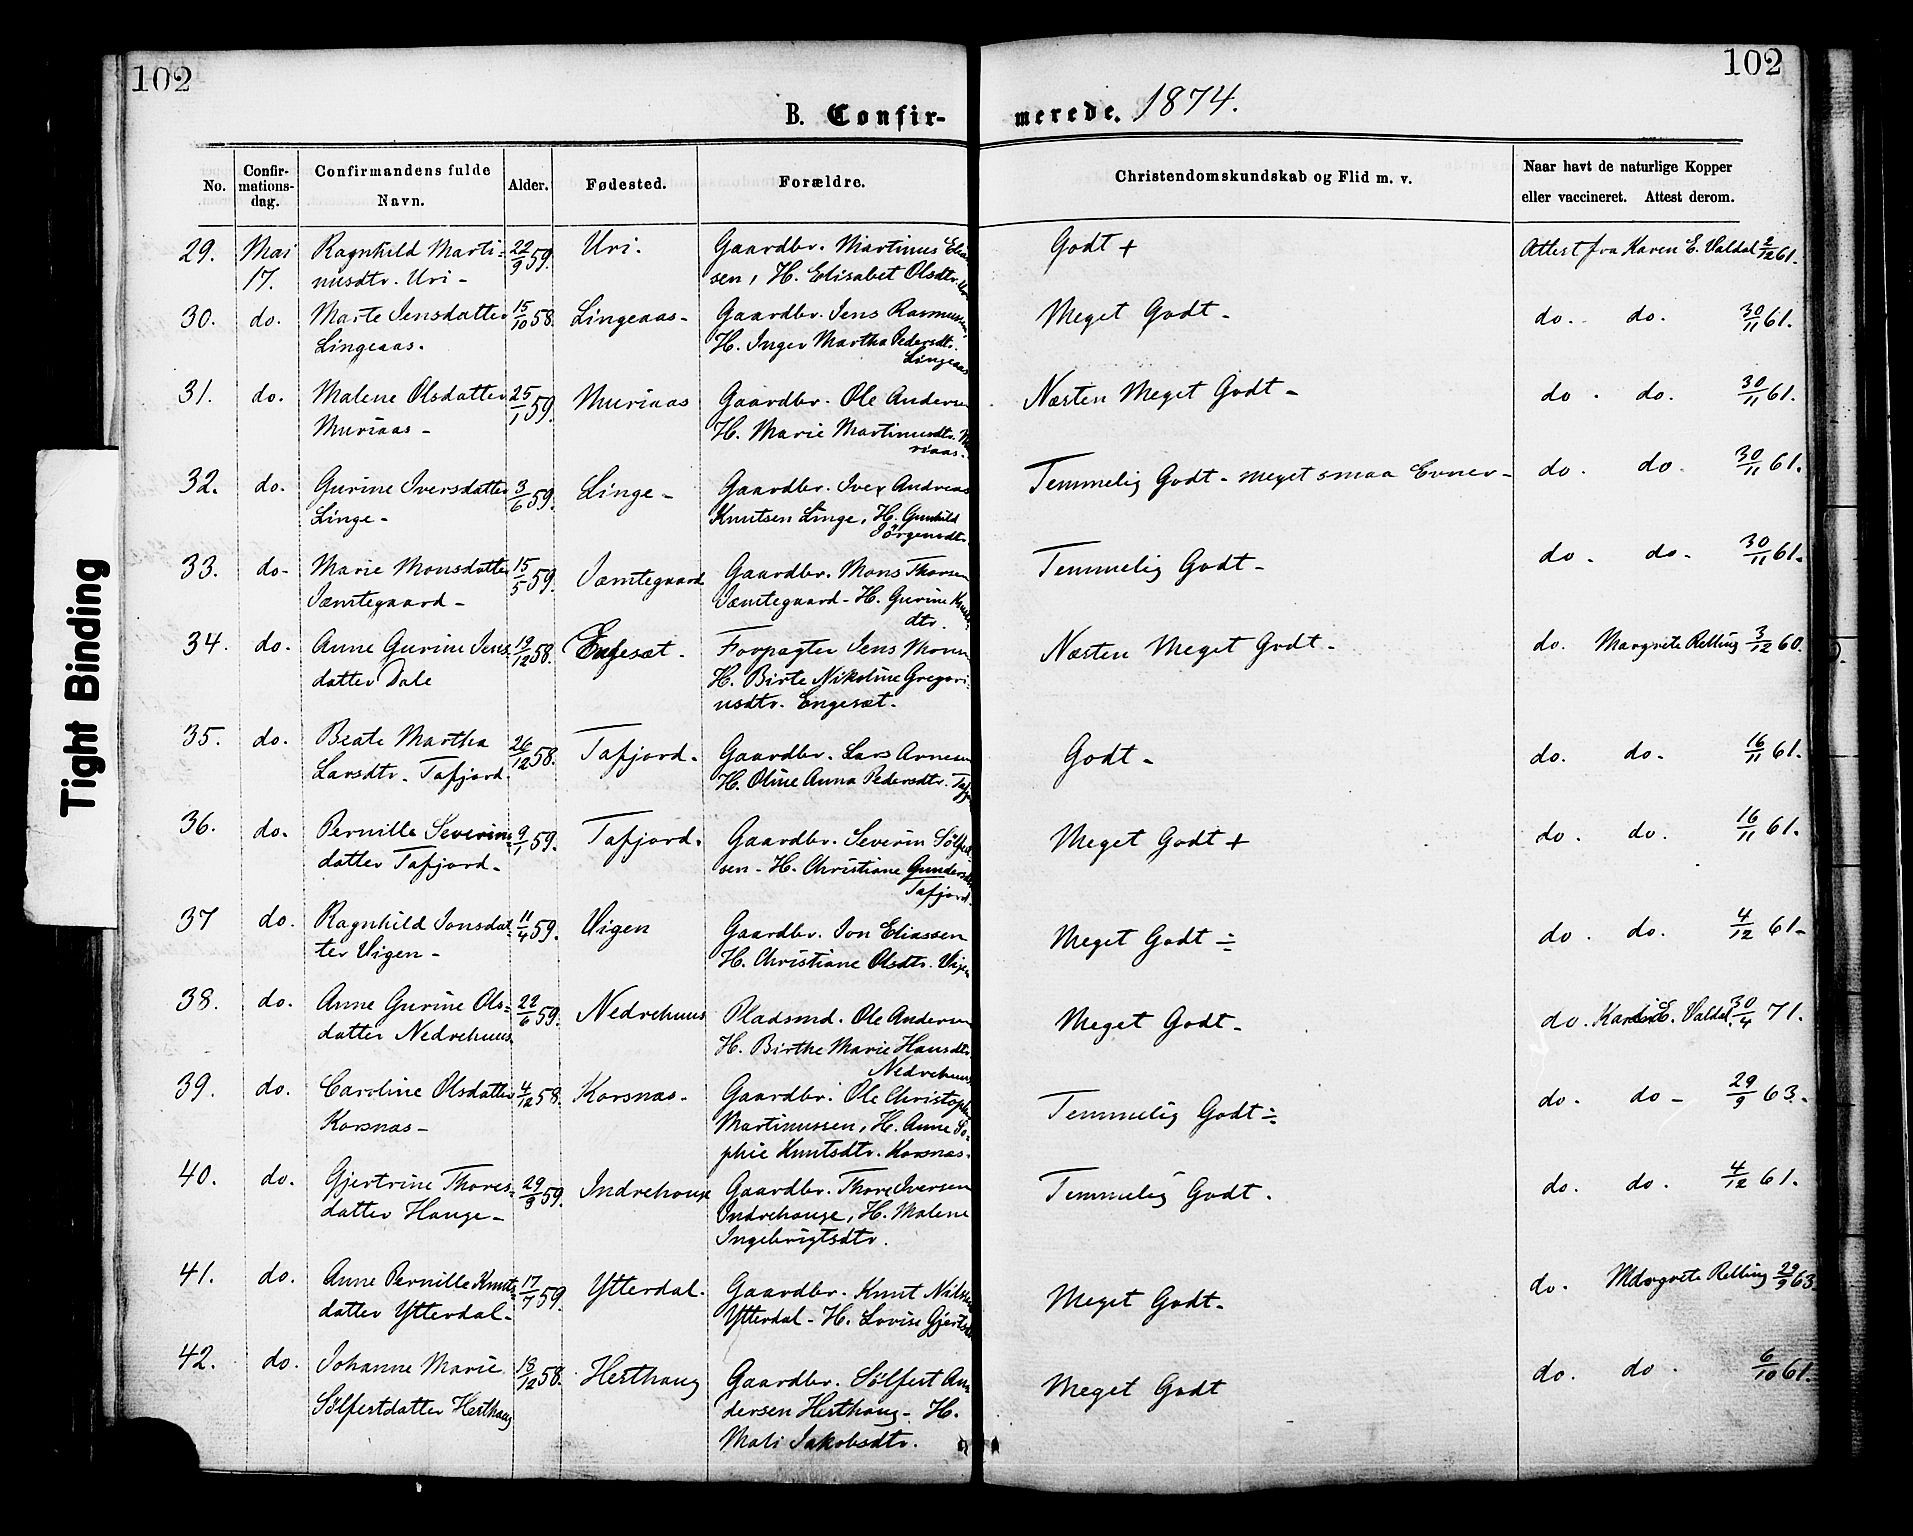 102
102
B. Confir-
merede. 1874.
No.
Confir-
mations-
dag.
Confirmandens fulde
Navn.
Alder.
Fødested.
Forældre.
Christendomskundskab og Flid m. v.
Naar havt de naturlige Kopper
eller vaccineret. Attest derom.
29. Mai Ragnhild Marti- 22/9 59. Uri. Gaardbr. Martinus Elia Godt + Attest fra Karen E. Valdal 2/12 61.
17. nusdtr. Uri - sen, H. Elisabet Olsdtr.
30. do. Marte Jensdatter 15/10 58. Lingeaas- Gaardbr. Jens Rasmussen, Meget Godt - do. do. 30/11 61.
Lingeaas. H. Inger Martha Pedersdtr.
Lingeaas
31. do. Malene Olsdatter 25/1 59. Muriaas Gaardbr. Ole Andersen Næsten Meget Godt - do. do. 30/11 61.
Muriaas - H. Marie Martinusdtr. Mu
riaas.
32. do. Gurine Iversdatter 3/6 59. Linge - Gaardbr. Iver Andreas Temmelig Godt - meget smaa Evner - do. do. 30/11 61.
Linge - Knutsen Linge, H. Gunhild
Jörgensdtr.
33. do- Marie Monsdatter 15/5 59. Jæmtegaard Gaardbr. Mons Thorsen Temmelig Godt - do. do. 30/11 61.
Jæmtegaard - Jæmtegaard - H. Gurine
dtr.
34. do. Anne Gurine Jens 19/12 58. Engesæt. Forpagter Jens Monsen Næsten Meget Godt - do. Margrete Relling 3/12 60.
datter Dale H. Birte Nikoline Gregori-
usdtr. Engesæt.
35. do. Beate Martha 26/12 58. Tafjord. Gaardbr. Lars Arnesen Godt - do. do. 16/11 61.
Larsdtr. Tafjord. H. Oline Anna Pedersdtr. Tafj
36. do. Pernille Severins 9/1 59. Tafjord. Gaardbr. Severin Sölfest Meget Godt + do. do. 16/11 61.
datter Tafjord - sen - H. Christiane Gundersdtr
Tafjord.
37 do. Ragnhild Jonsdat- 11/4 59. Uigen Gaardbr. Jon Eliassen Meget Godt ÷ do. do. 4/12 61-
ter Uigen - H. Christiane Olsdtr. Uigen
38. do. Anne Gurine Ols- 22/6 59. Nedrehuus Pladsmd. Ole Andersen Meget Godt - do. Karen E. Valdal. 30/4 71.
datter Nedrehuus. H. Birthe Marie Hansdtr
Nedrehuus
39. do. Caroline Olsdatter 4/12 58. Korsnæs - Gaardbr. Ole Christoph Temmelig Godt ÷ do. do - 29/9 63.
Korsnæs - Martinussen, H. Anne So-
phie Knutsdtr. Korsnæs.
40. do. Gjertrine Thores- 29/3 59. Indrehauge Gaardbr. Thore Iversen Temmelig Godt. do. do. 4/12 61.
datter Hauge - Indrehauge, H. Malene
Ingebrigtsdtr.
41. do. Anne Pernille Knuts- 17/7 59. Ytterdal. Gaardbr. Knut Nilssen Meget Godt - do. Margrete Relling 29/9 63.
datter Ytterdal - Ytterdal - H. Lovise Gjertsdtr
42. do. Johanne Marie 18/12 58. Herthaug Gaardbr. Sölfest An Meget Godt do. do. 6/10 61.
Sölfestdatter Herthaug dersen Herthaug - H.
Mali Jakobsdtr.
Tight Binding